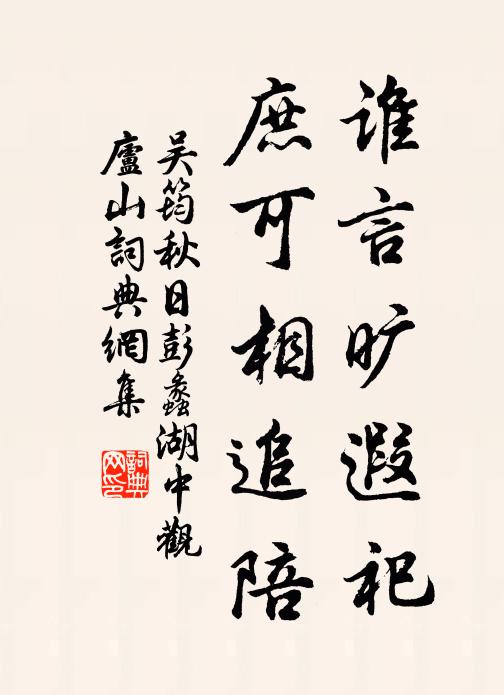 谁言旷遐祀
庶可相追陪
吴筠秋日彭蠡湖中觀
廬山詞典網集
詞典
网印